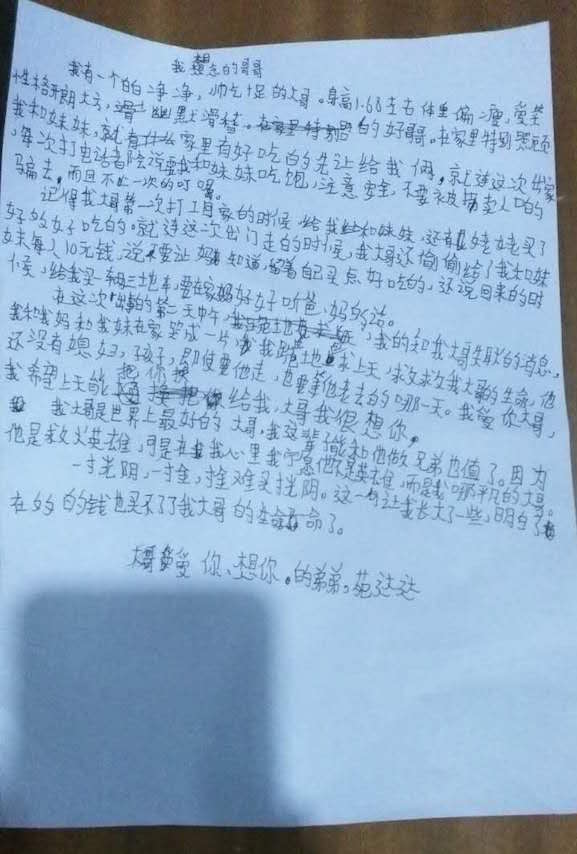 我想念的哥哥
我有一个白白净净,帅气十足的大哥。身高1.68左右体重偏瘦,爱笑
性格开朗大方,幽默滑稽。的好哥哥。在家里特别照顾
我和妹妹,就有家里有好吃的先让给我俩,就连这次出家
,每次打电话音陪说要我和妹妹吃饱,注意安全,不要被拐卖人口的
骗去,而且不止一次的叮嘱。
记得我大哥第一次打工回家的时候,给我和妹妹,还有姥姥买了
好多好吃的。就连这次出门走的时候,我大哥还偷偷给了我和妹
妹每人10元钱,说不要让妈知道,留着自己买点好吃的,还说回来的时
候,给我买一辆三地车,要在家好好听爸、妈的话。
在这次出事的第二天中午,我的知我大哥失联的消息,
我和我妈和我妹在家哭成一片,我跪地求上天,救救我大哥的生命,他
还没有媳妇,孩子,即使要他走,也要等他老去的哪一天。我爱你大哥,
我希望上天能把你换给我,大哥我很想你。
我大哥是世界上最好的大哥,我这辈子能和他做兄弟也值了。因为
他是救火英雄,可是在我心里我宁愿他不是英雄,而是我平凡的大哥。
一寸光阴,一寸金,寸金难买寸光阴。这一句让我长大了一些,明白了
在多的钱也买不了了我大哥的生命了。
大哥爱你、想你。的弟弟,苑达达